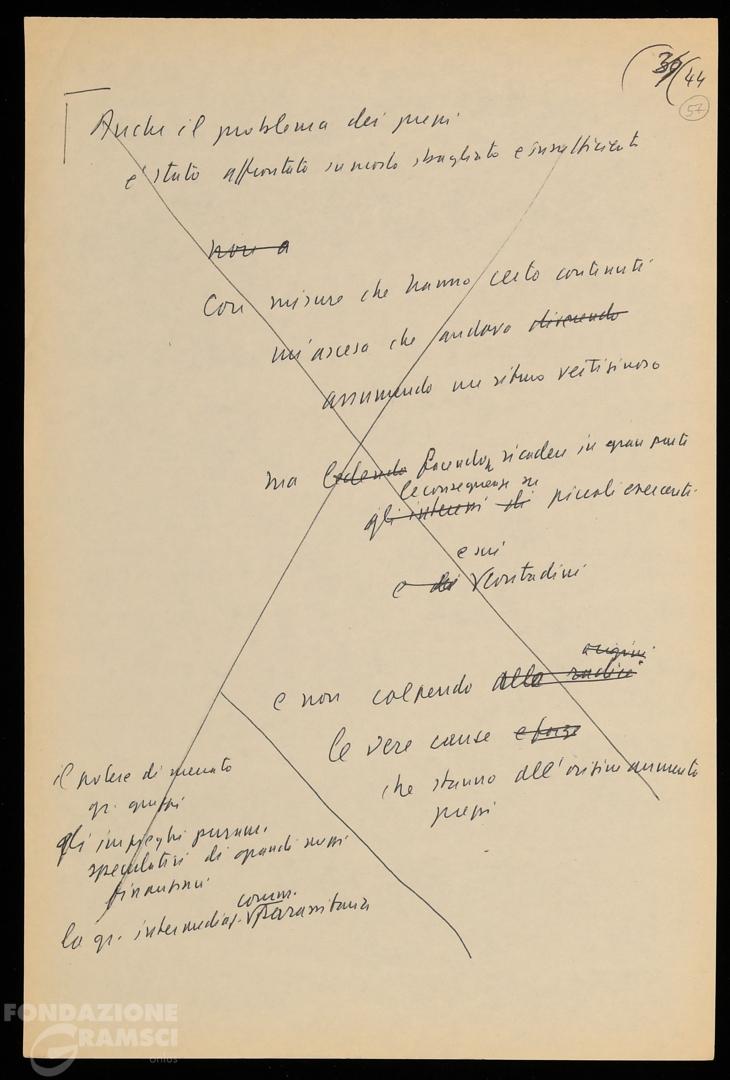 39 44
57
Anche il problema dei prezzi
è stato affrontato in modo sbagliato e insufficiente
non a
Con misure che hanno certo contenuti
un'ascesa che andava divenendo
assumendo un ritmo vertiginoso
ma ledendo facendo ricadere in gran parte
le conseguenze su
gli interessi di piccoli esercenti
e sui
e dei contadini
origini
e non colpendo alle radici
le vere cause e forze
che stanno all'origine aumento
prezzi
il potere di mercato
gr. gruppi
gli impieghi puram.
speculativi di grandi mezzi
finanziari
comm.
la gr. intermediaz. parassitaria
FONDAZIONE
GRAMSCI
onlus